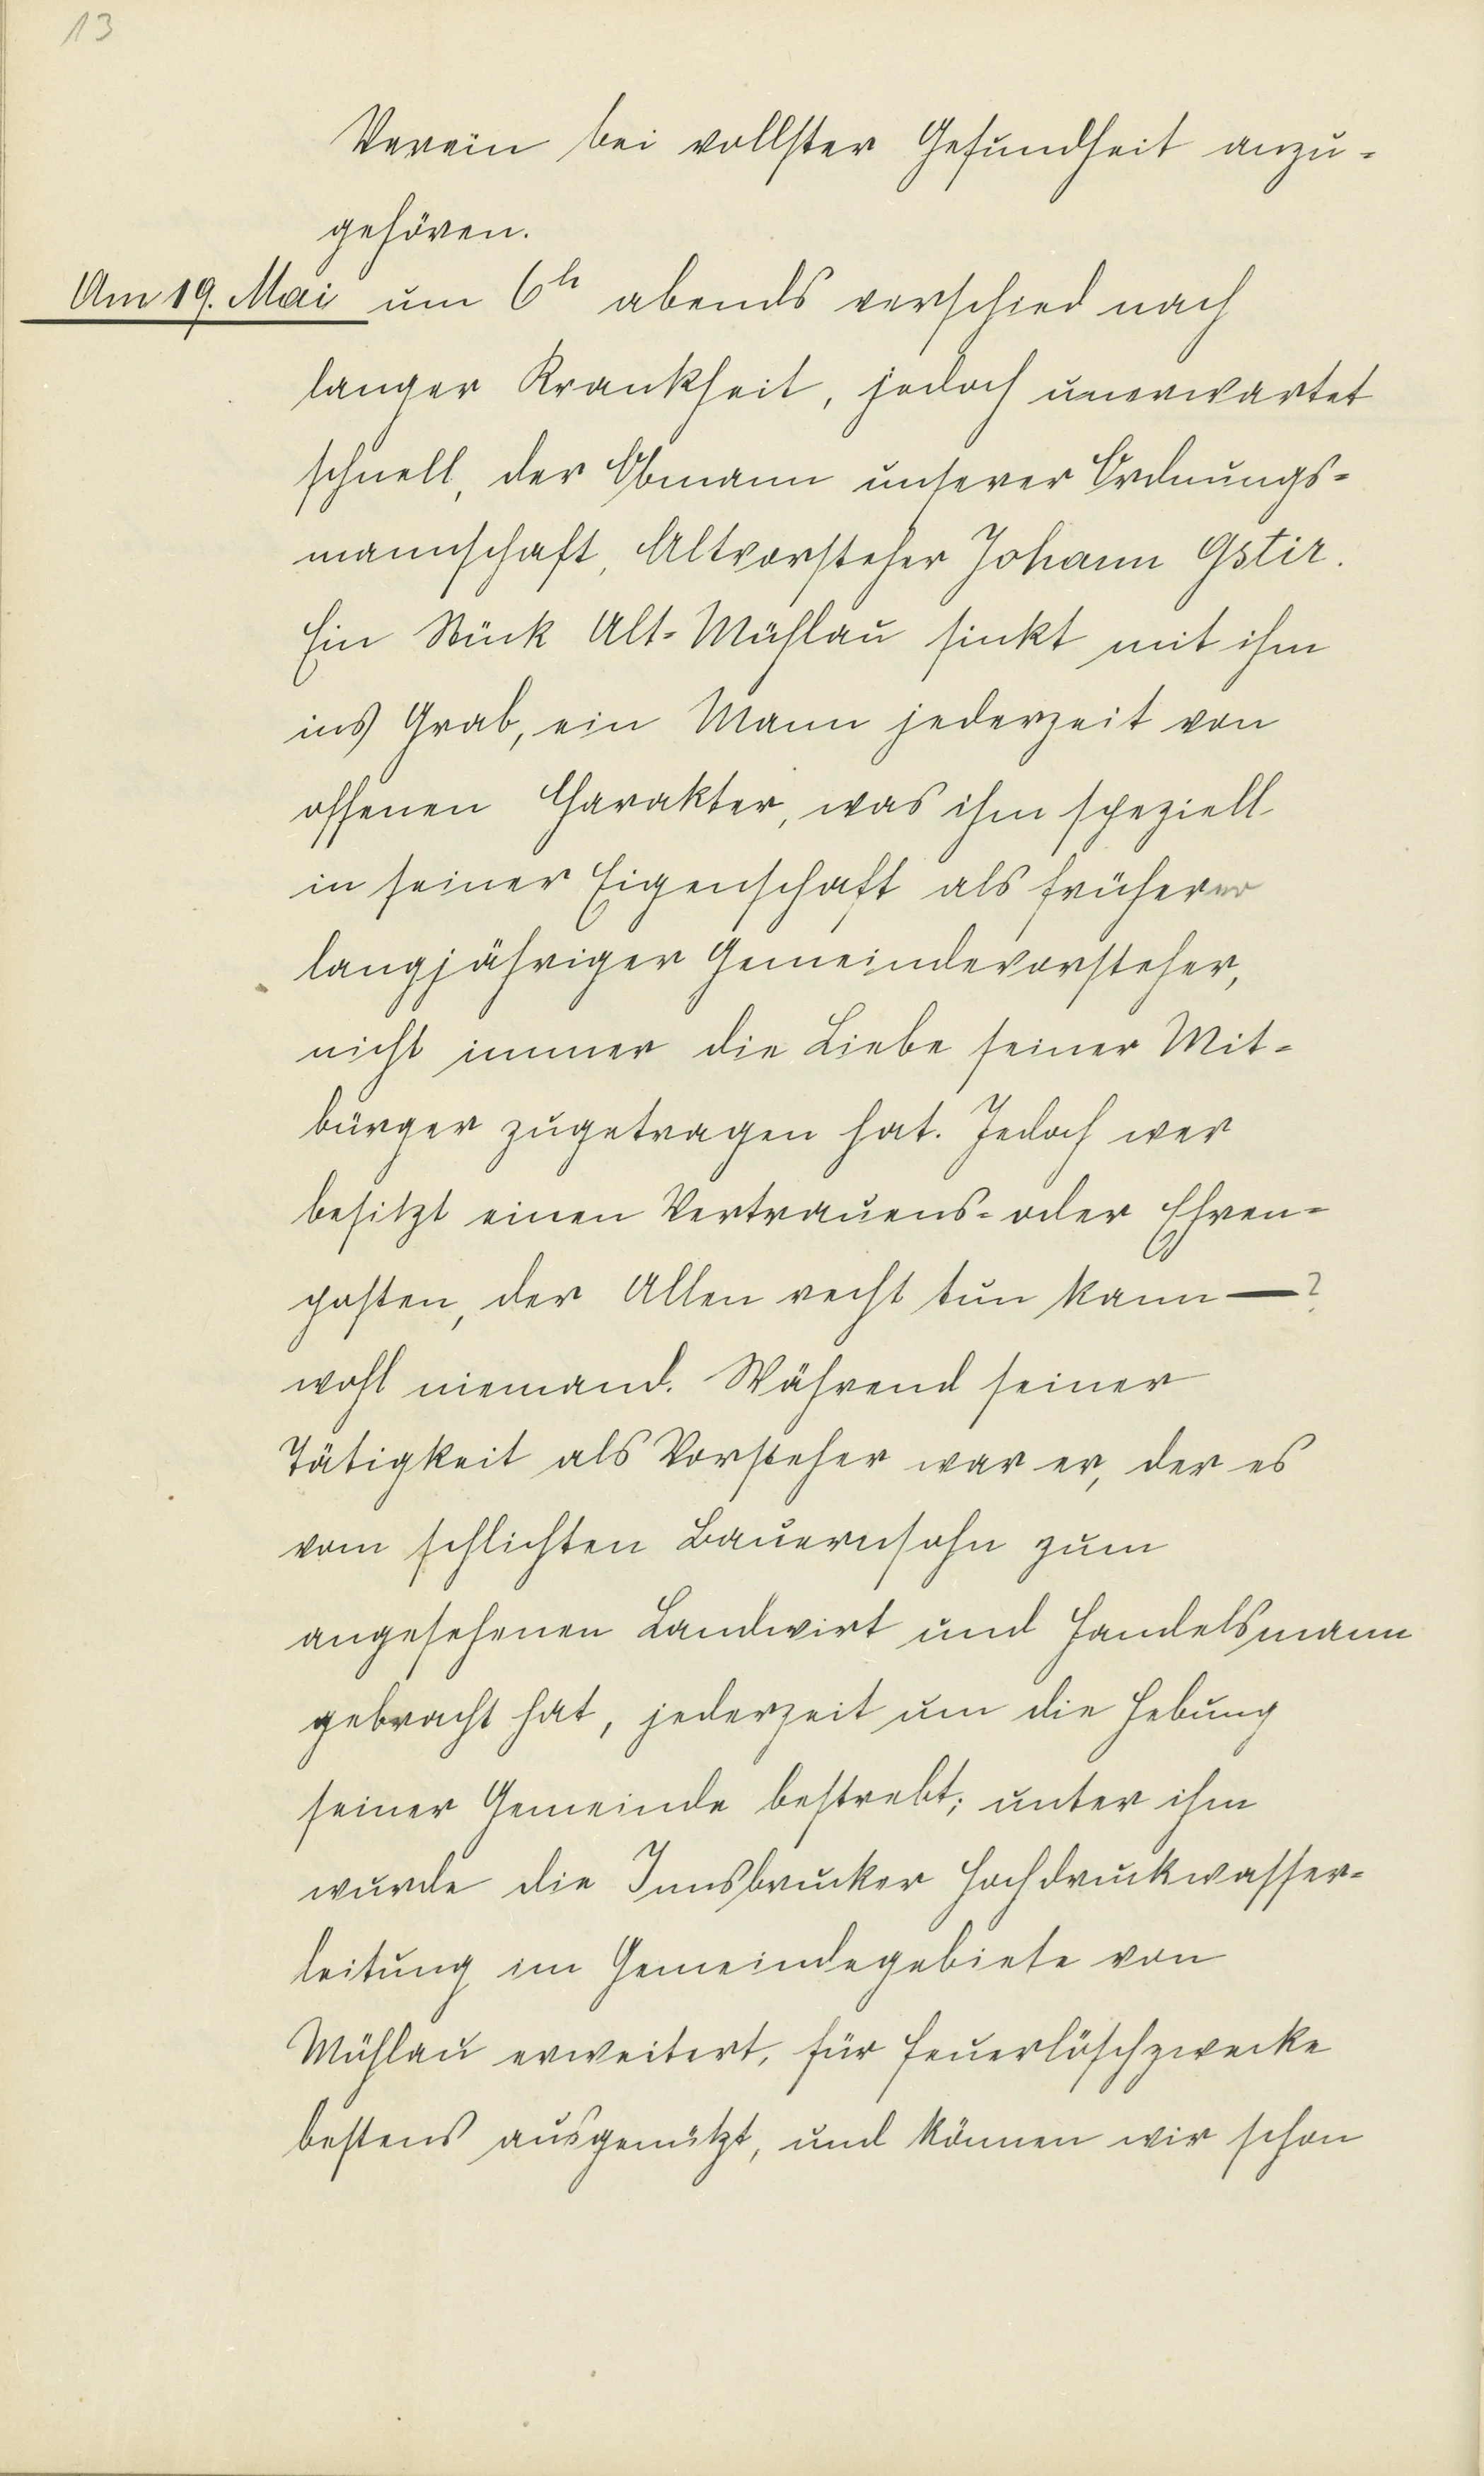 13
Verein bei vollster Gesundheit anzu-
gehören.
Am 19. Mai um 6h abends verschied nach
langer Krankheit, jedoch unerwartet
schnell, der Obmann unserer Ordnungs-
mannschaft, Altvorsteher Johann Gstir.
Ein Stück Alt-Mühlau sinkt mit ihm
ins Grab, ein Mann jederzeit von
offenen Charakter, was ihm speziell
in seiner Eigenschaft als früherer
langjähriger Gemeindevorsteher,
nicht immer die Liebe seiner Mit-
bürger zugetragen hat. Jedoch wer
besitzt einen Vertrauens- oder Ehren-
posten, der Allen recht tun kann —?
wohl niemand. Während seiner
Tätigkeit als Vorsteher war er, der es
vom schlichten Bauernsohn zum
angesehenen Landwirt und Handelsmann
gebracht hat, jederzeit um die Hebung
seiner Gemeinde bestrebt; unter ihm
wurde die Innsbrucker Hochdruckwasser-
leitung im Gemeindegebiete von
Mühlau erweitert, für Feuerlöschzwecke
bestens ausgenützt, und können wir schon